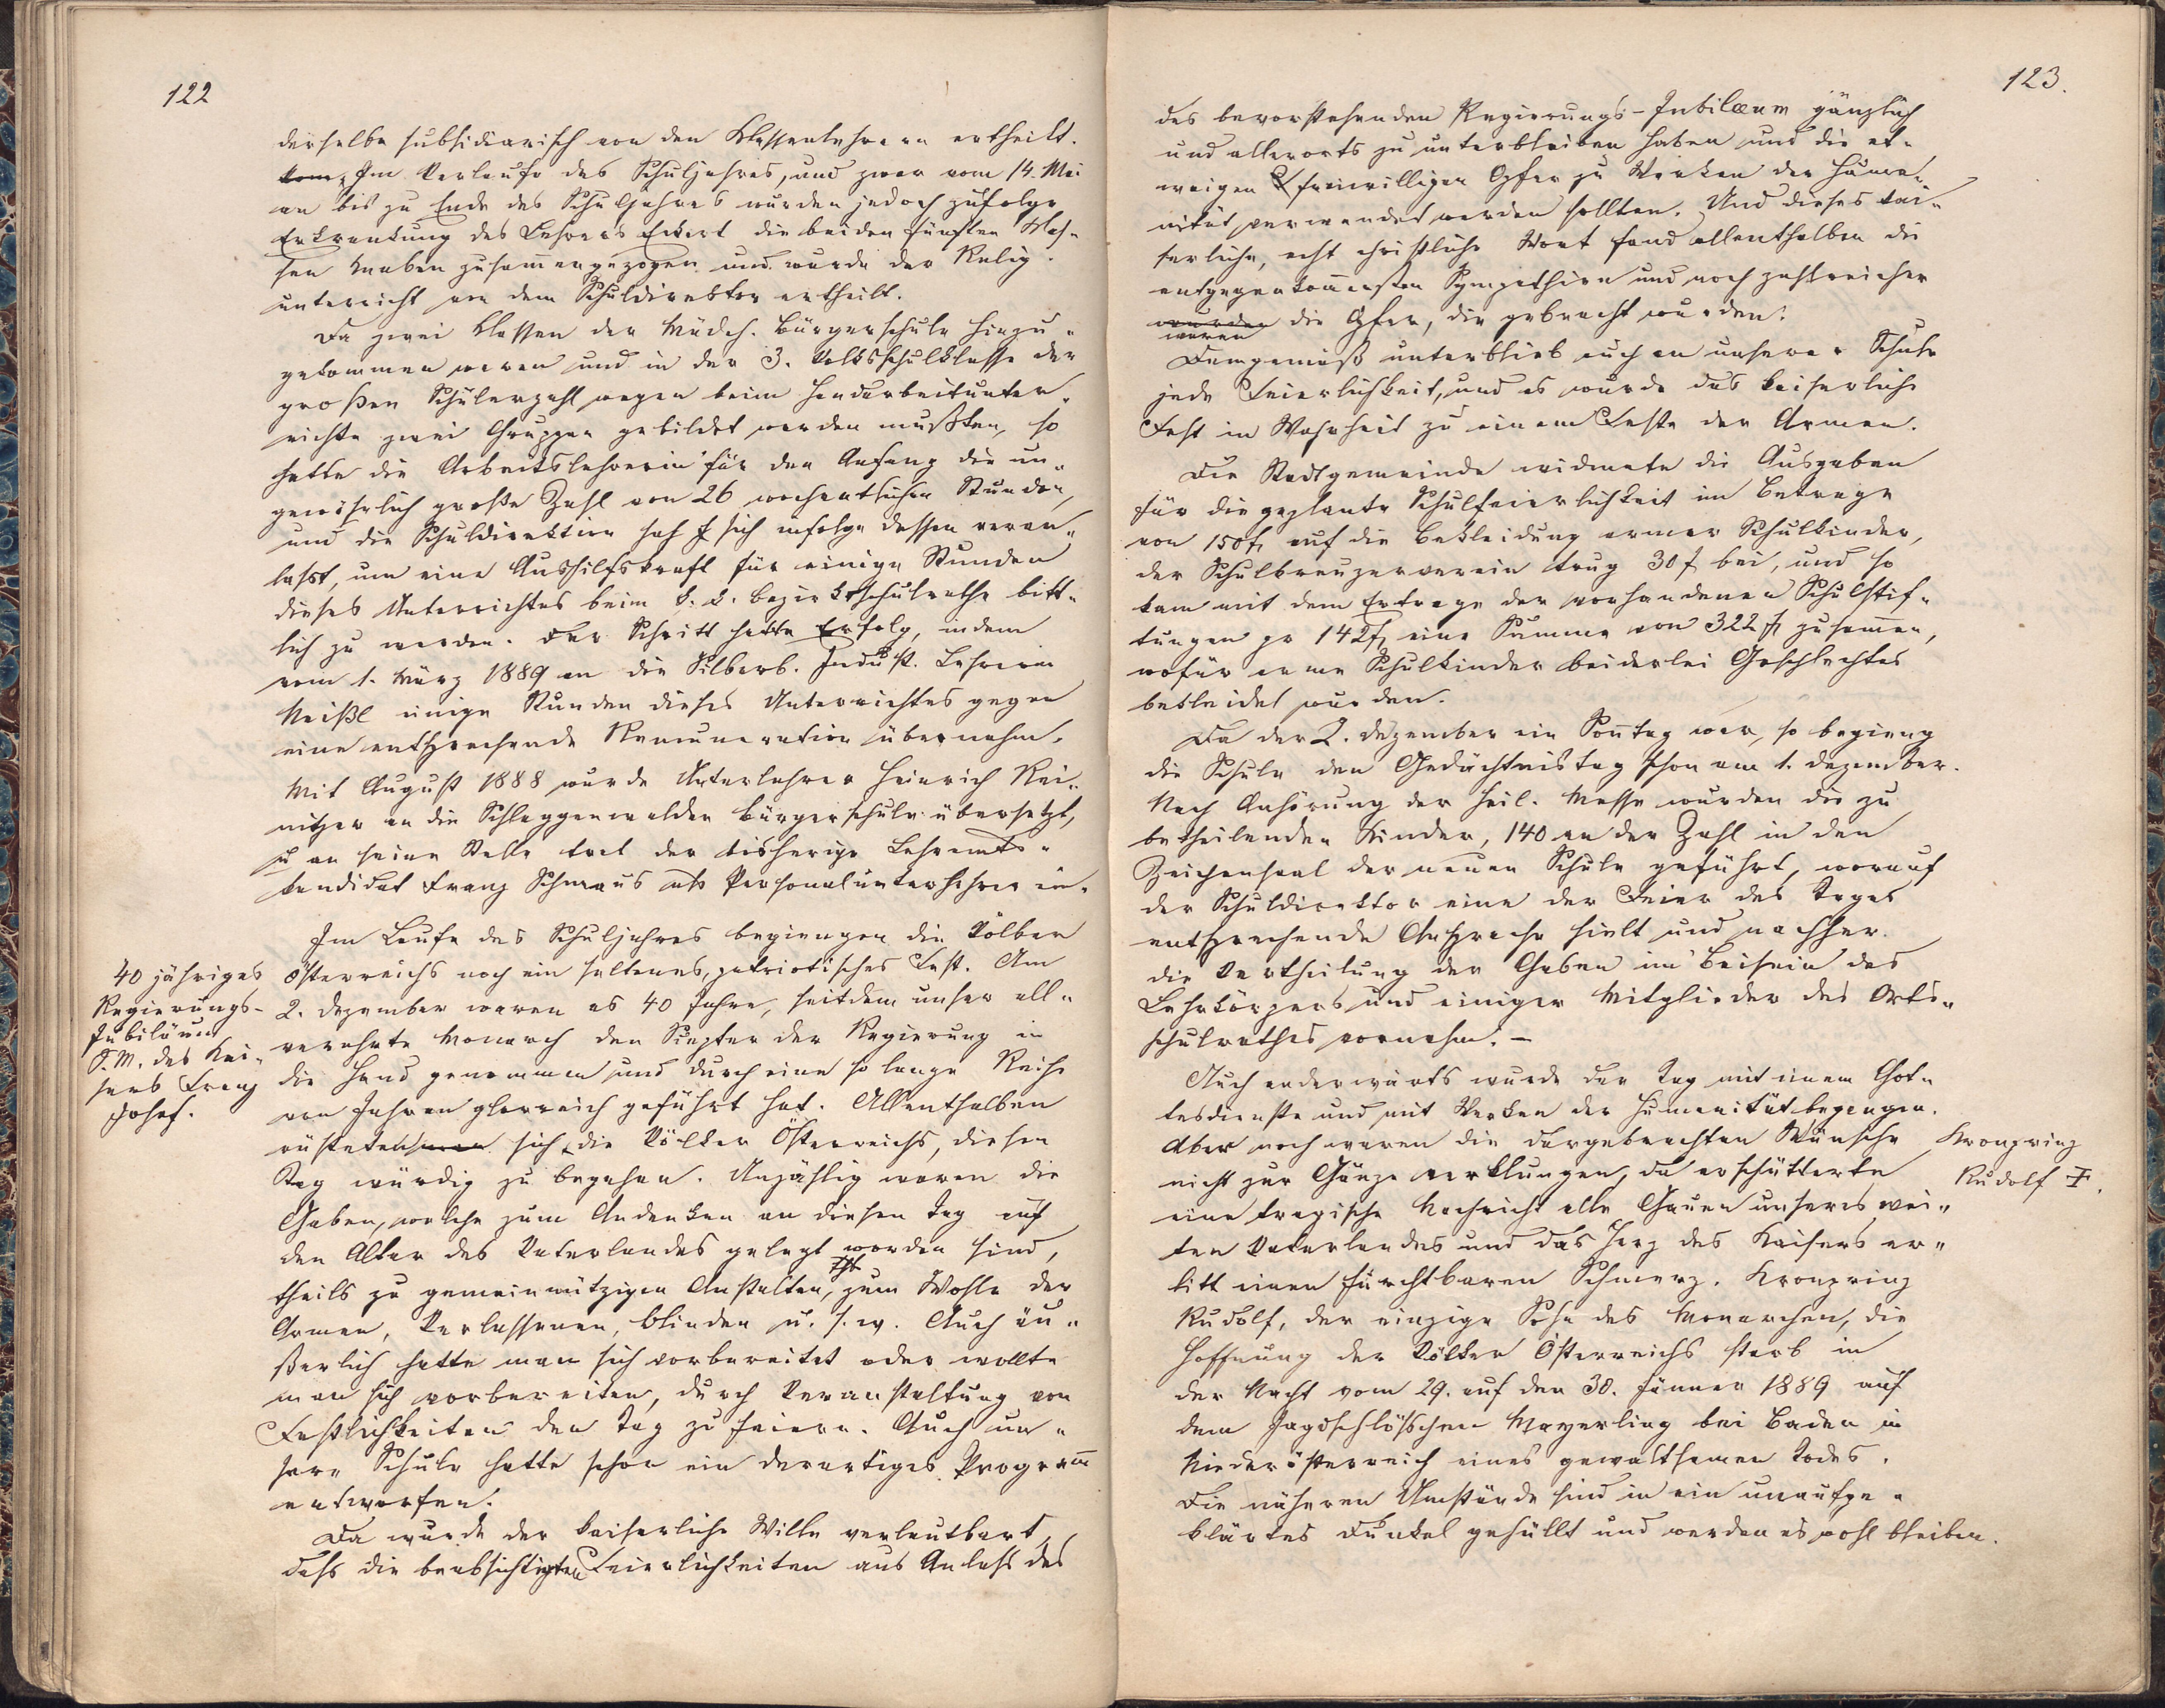 122
derselbe subsidiarisch von den Klassenlehrern ertheilt.
Im Verlaufe des Schuljahres, und zwar vom 14. Mai
an bis zu Ende des Schuljahres wurden jedoch zufolge
Erkrankung des Lehrers Eckert die beiden fünften Klas-
sen Knaben zusam̅engezogen und wurde der Relig.
unterricht von dem Schuldirektor ertheilt.
Da zwei Klassen der Mädch. Bürgerschule hinzu-
gekommen waren und in der 3. Volksschulklasse der
großen Schülerzahl wegen beim Handarbeitunter-
richte zwei Gruppen gebildet werden mußten, so
hatte die Arbeitslehrerin für den Anfang die un-
gewöhnlich große Zahl von 26 wochentlichen Stunden,
und die Schuldirektion sah sich infolge dessen veran-
lasst, um eine Aushilfskraft für einige Stunden
dieses Unterrichtes beim k. k. Bezirksschulrathe bitt-
lich zu werden. Der Schritt hatte Erfolg, indem
vom 1. März 1889 an die Silberb. Indust. Lehrerin
Meißl einige Stunden dieses Unterrichtes gegen
eine entsprechende Remuneration übernahm.
Mit August 1888 wurde Unterlehrer Heinrich Rei-
nitzer an die Schlaggenwalder Bürgerschule übersetzt,
u an seine Stelle trat der bisherige Lehramts-
kandidat Franz Schmaus als Personalunterlehrer ein.
Im Laufe des Schuljahres begiengen die Völker
40 jähriges
Regierungs-
Jubiläum
S. M. des Kai-
sers Franz
Josef.
Österreichs noch ein seltenes, patriotisches Fest. Am
2. Dezember waren es 40 Jahre, seitdem unser all-
verehrte Monarch den Szepter der Regierung in
die Hand genommen und durch eine so lange Reihe
von Jahren glorreich geführt hat. Allenthalben
rüsteten sich die Völker Österreichs, diesen
Tag würdig zu begehen. Unzählig waren die
Gaben, welche zum Andenken an diesen Tag auf
den Altar des Vaterlandes gelegt worden sind,
theils zu gemeinnützigen Anstalten, zum Wohle der
Armen, Verlassenen, Blinden u. s. w. Auch äu-
ßerlich hatte man sich vorbereitet oder wollte
man sich vorbereiten, durch Veranstaltung von
Festlichkeiten den Tag zu feiern. Auch un-
sere Schule hatte schon ein derartiges Program̅
entworfen.
Da wurde der kaiserliche Wille verlautbart,
dass die beabsichtigten Feierlichkeiten aus Anlass des
123.
des bevorstehenden Regierungs-Jubilæum gänzlich
und allerorts zu unterbleiben haben und die et-
waigen freiwilligen Opfer zu Werken der Huma-
nität verwendet werden sollten. Und dieses kai-
serliche, echt christliche Wort fand allenthalben die
entgegenkom̅ensten Sympathien und noch zahlreicher
wurden die Opfer, die gebracht wurden.
waren
Demgemäß unterblieb auch an unserer Schule
jede Feierlichkeit, und es wurde das kaiserliche
Fest in Wahrheit zu einem Feste der Armen.
Die Stadtgemeinde widmete die Ausgaben
für die geplante Schulfeierlichkeit im Betrage
von 150 fl auf die Bekleidung armer Schulkinder,
der Schulkreuzerverein trug 30 f bei, und so
kam mit dem Ertrage der vorhandenen Schulstif-
tungen pr 142 fl eine Summe von 322 fl zusam̅en,
wofür arme Schulkinder beiderlei Geschlechtes
bekleidet wurden.
Da der 2. Dezember ein Son̅tag war, so begieng
die Schule den Gedächtnistag schon am 1. Dezember.
Nach Anhörung der heil. Messe wurden die zu
betheilenden Kinder, 140 an der Zahl in den
Zeichensaal der neuen Schule geführt, worauf
der Schuldirektor eine der Feier des Tages
entsprechende Ansprache hielt und nachher
die Vertheilung der Gaben im Beisein des
Lehrkörpers und einiger Mitglieder des Orts-
schulrathes vornahm. –
Auch anderwärts wurde der Tag mit einem Got-
tesdienste und mit Werken der Humanität begangen.
Aber noch waren die dargebrachten Wünsche
Kronprinz
Rudolf ‡.
nicht zur Gänze verklungen, da erschütterte
eine tragische Nachricht alle Gauen unseres wei-
ten Vaterlandes und das Herz des Kaisers er-
litt einen furchtbaren Schmerz. Kronprinz
Rudolf, der einzige Sohn des Monarchen, die
Hoffnung der Völker Österreichs starb in
der Nacht vom 29. auf den 30. Jänner 1889 auf
dem Jagdschlösschen Mayerling bei Baden in
Niederösterreich eines gewaltsamen Todes.
Die näheren Umstände sind in ein unaufge-
klärtes Dunkel gehüllt und werden es wohl bleiben.